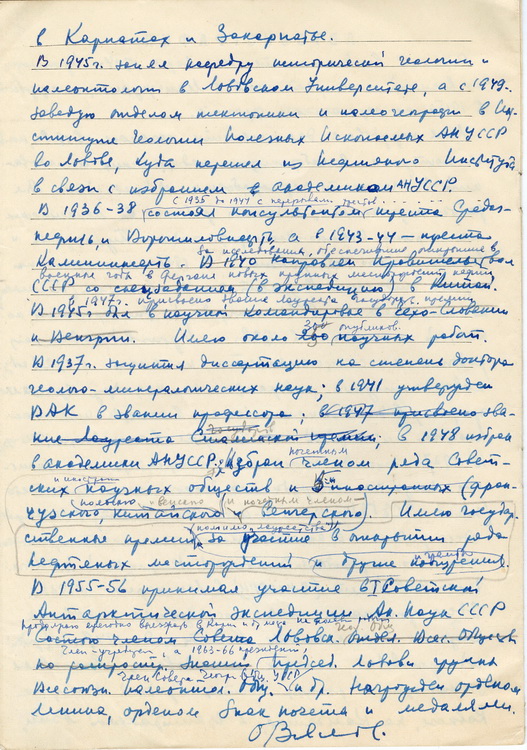 в Карпатах и Закарпатье.
В 1945г. занял кафедру исторической геологии и
палеонтологии в Львовском Университете, а с 1949-
заведую отделом тектоники и палеогеографии в Ин-
ституте Геологии Полезных Ископаемых АН УССР
во Львове, куда перешел из Нефтяного Института
в связи с избранием в академики АН УССР.
с 1935 до 1947 с перерывами
В 1936-38 состоял консультантом треста Средаз-
нефть, и Ворошиловнефть, а в 1943-44 - треста
Калининнефть. В 1940
военные годы в Фергане новых крупных месторождений нефти
СССР в экспедицию в Китай.
в 1947г. присвоено звание лауреата
В 1945г. был в научной командировке в Чехо-Словакии
и Венгрии. Имею около 300 опубликов. научных работ.
В 1937г. защитил диссертацию на степень доктора
геолого-минералогических наук; в 1941 утвержден
ВАК в звании профессора; в 1947 присвоено зва-
ние Лауреата Сталинской премии; в 1948 избран
в академики АН УССР. Избран почетным членом ряда Совет-
ских и иностран. научных обществ и иностранных (фран-
цузского, китайского и Венгерского). Имею государ-
ственные премии за участие в открытии ряда
нефтяных месторождений и другие поощрения.
В 1955-56 принимал участие в I Советской
Антарктической экспедиции Ак. Наук СССР
Состою членом Совета Львовск. отдел. Всес. Общества
Член-учредит., а 1963-66 президент,
по распростр. Знаний, Председ. Львовск. группы
Всесоюзн. Палеонтол. Общ. и др. Награжден орденом
Ленина, орденом Знак почета и медалями.